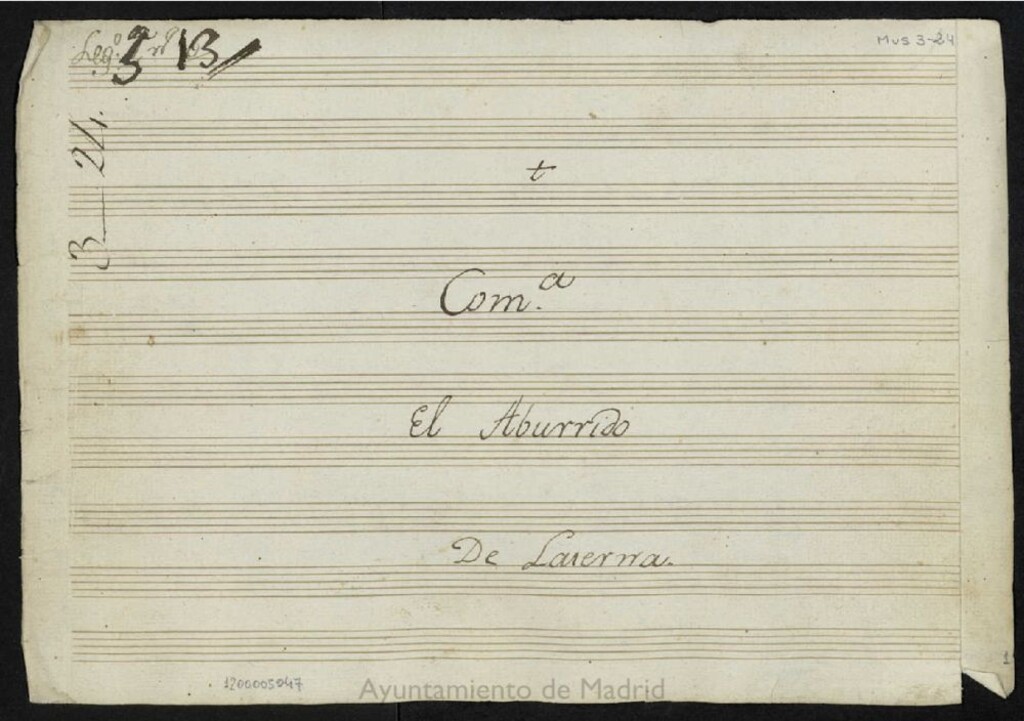 Leg.º 3 nº 13
Mus 3-24
3—24.
t
Com.ª
El Aburrido
De Laserna.
1200005047
Ayuntamiento de Madrid
1